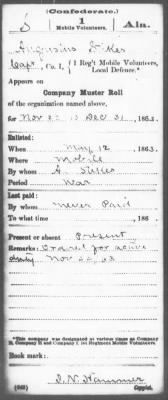 (Confederate.)
S 1 Ala.
Mobile Volunteers.
Augustus Stikes
Capt, Co. I, 1 Reg't Mobile Volunteers,
Local Defence.*
Appears on
Company Muster Roll
of the organization named above,
for Nov 22 to Dec 31, 1863.
Enlisted:
When May 12, 1863.
Where Mobile
By whom A. Stikes
Period War
Last paid:
By whom never Paid
To what time , 186 .
Present or absent Present
Remarks: Ordered for active
duty Nov 22, 63
*This company was designated at various times as Company
H, Company B and Company I, 1st Regiment Mobile Volunteers.
Book mark:
J. N. Hammer
(642) Copyist.